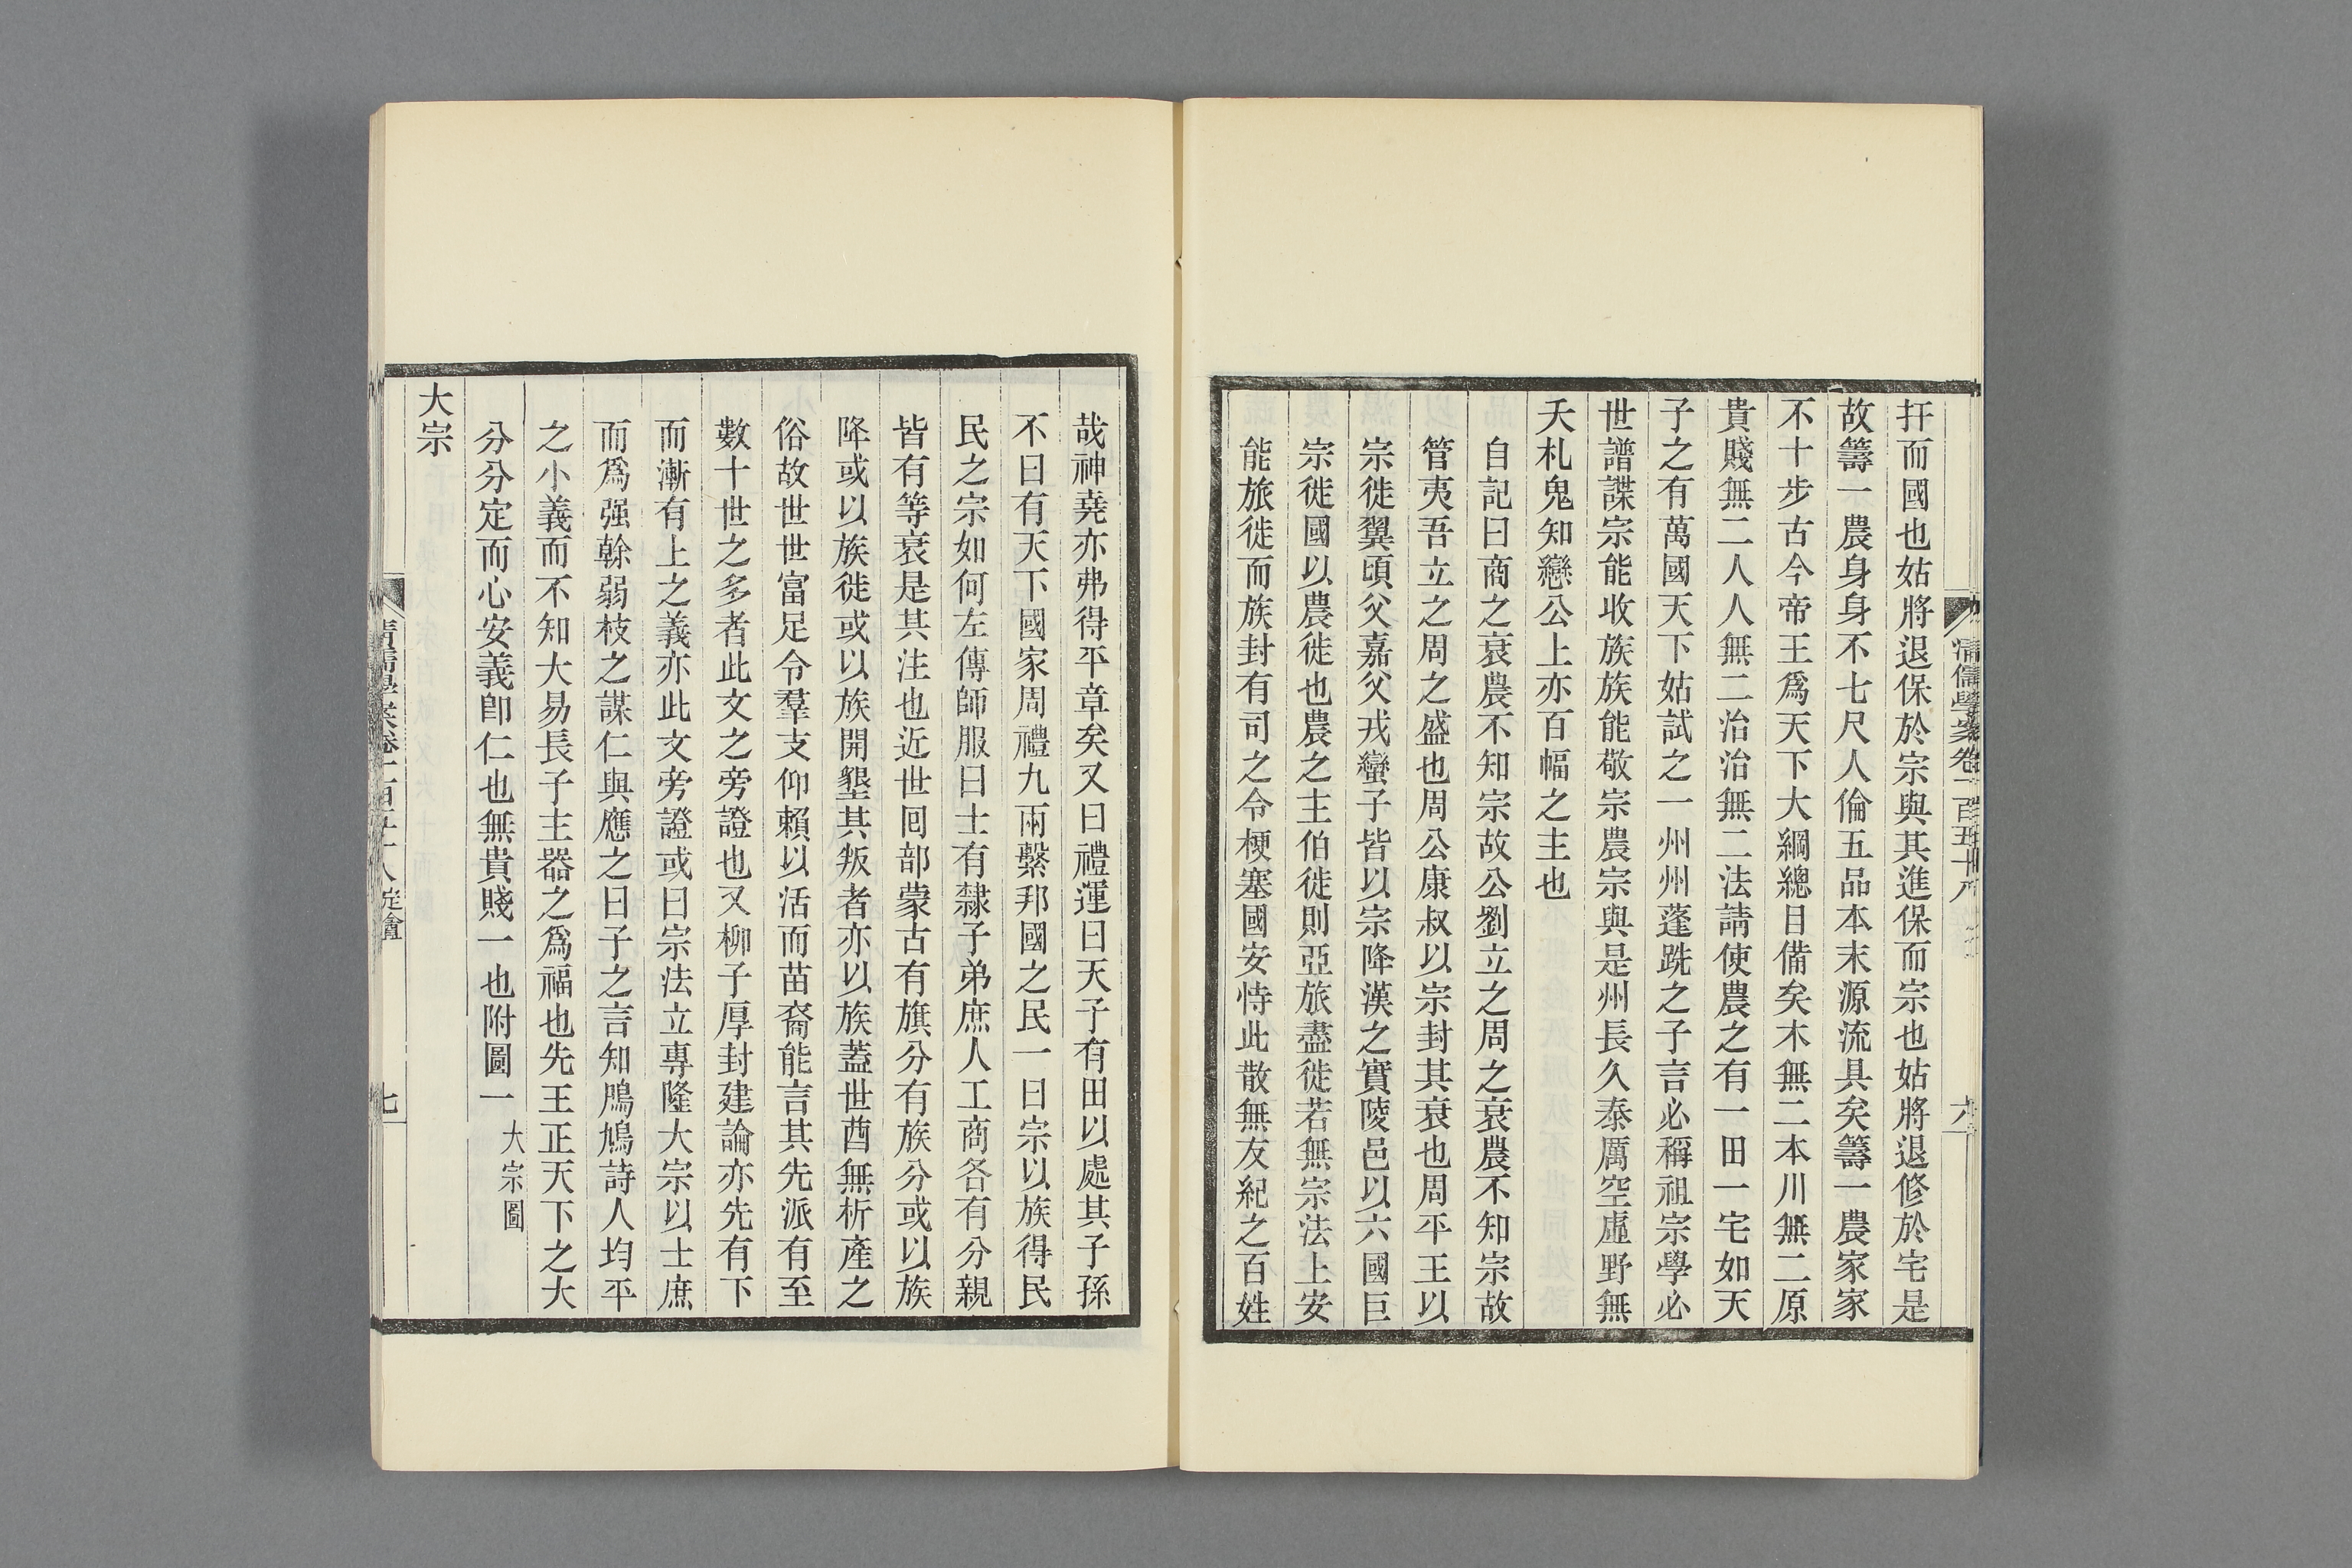 清儒學案卷一百五十八
六
扞而國也姑將退保於宗與其進保而宗也姑將退修於宅是
故籌一農身身不七尺人倫五品本末源流具矣籌一農家家
不十步古今帝王爲天下大綱總目備矣木無二本川無二原
貴賤無二人人無二治治無二法請使農之有一田一宅如天
子之有萬國天下姑試之一州州蓬跣之子言必稱祖宗學必
世譜諜宗能收族族能敬宗農宗與是州長久泰厲空虛野無
夭札鬼知戀公上亦百幅之主也
自記曰商之衰農不知宗故公劉立之周之衰農不知宗故
管夷吾立之周之盛也周公康叔以宗封其衰也周平王以
宗徙翼頃父嘉父戎蠻子皆以宗降漢之實陵邑以六國巨
宗徙國以農徙也農之主伯徙則亞旅盡徙若無宗法上安
能旅徙而族封有司之令梗塞國安恃此散無友紀之百姓
哉神堯亦弗得平章矣又曰禮運曰天子有田以處其子孫
不曰有天下國家周禮九兩繫邦國之民一曰宗以族得民
民之宗如何左傳師服曰士有隸子弟庶人工商各有分親
皆有等衰是其注也近世囘部蒙古有旗分有族分或以族
降或以族徙或以族開墾其叛者亦以族蓋世酋無析產之
俗故世世富足令羣支仰賴以活而苗裔能言其先派有至
數十世之多者此文之旁證也又柳子厚封建論亦先有下
而漸有上之義亦此文旁證或曰宗法立專隆大宗以士庶
而爲强榦弱枝之謀仁與應之曰子之言知鳲鳩詩人均平
之小義而不知大易長子主器之爲福也先王正天下之大
分分定而心安義卽仁也無貴賤一也附圖一大宗圖
大宗
清儒學案卷一百五十八 定盦
七